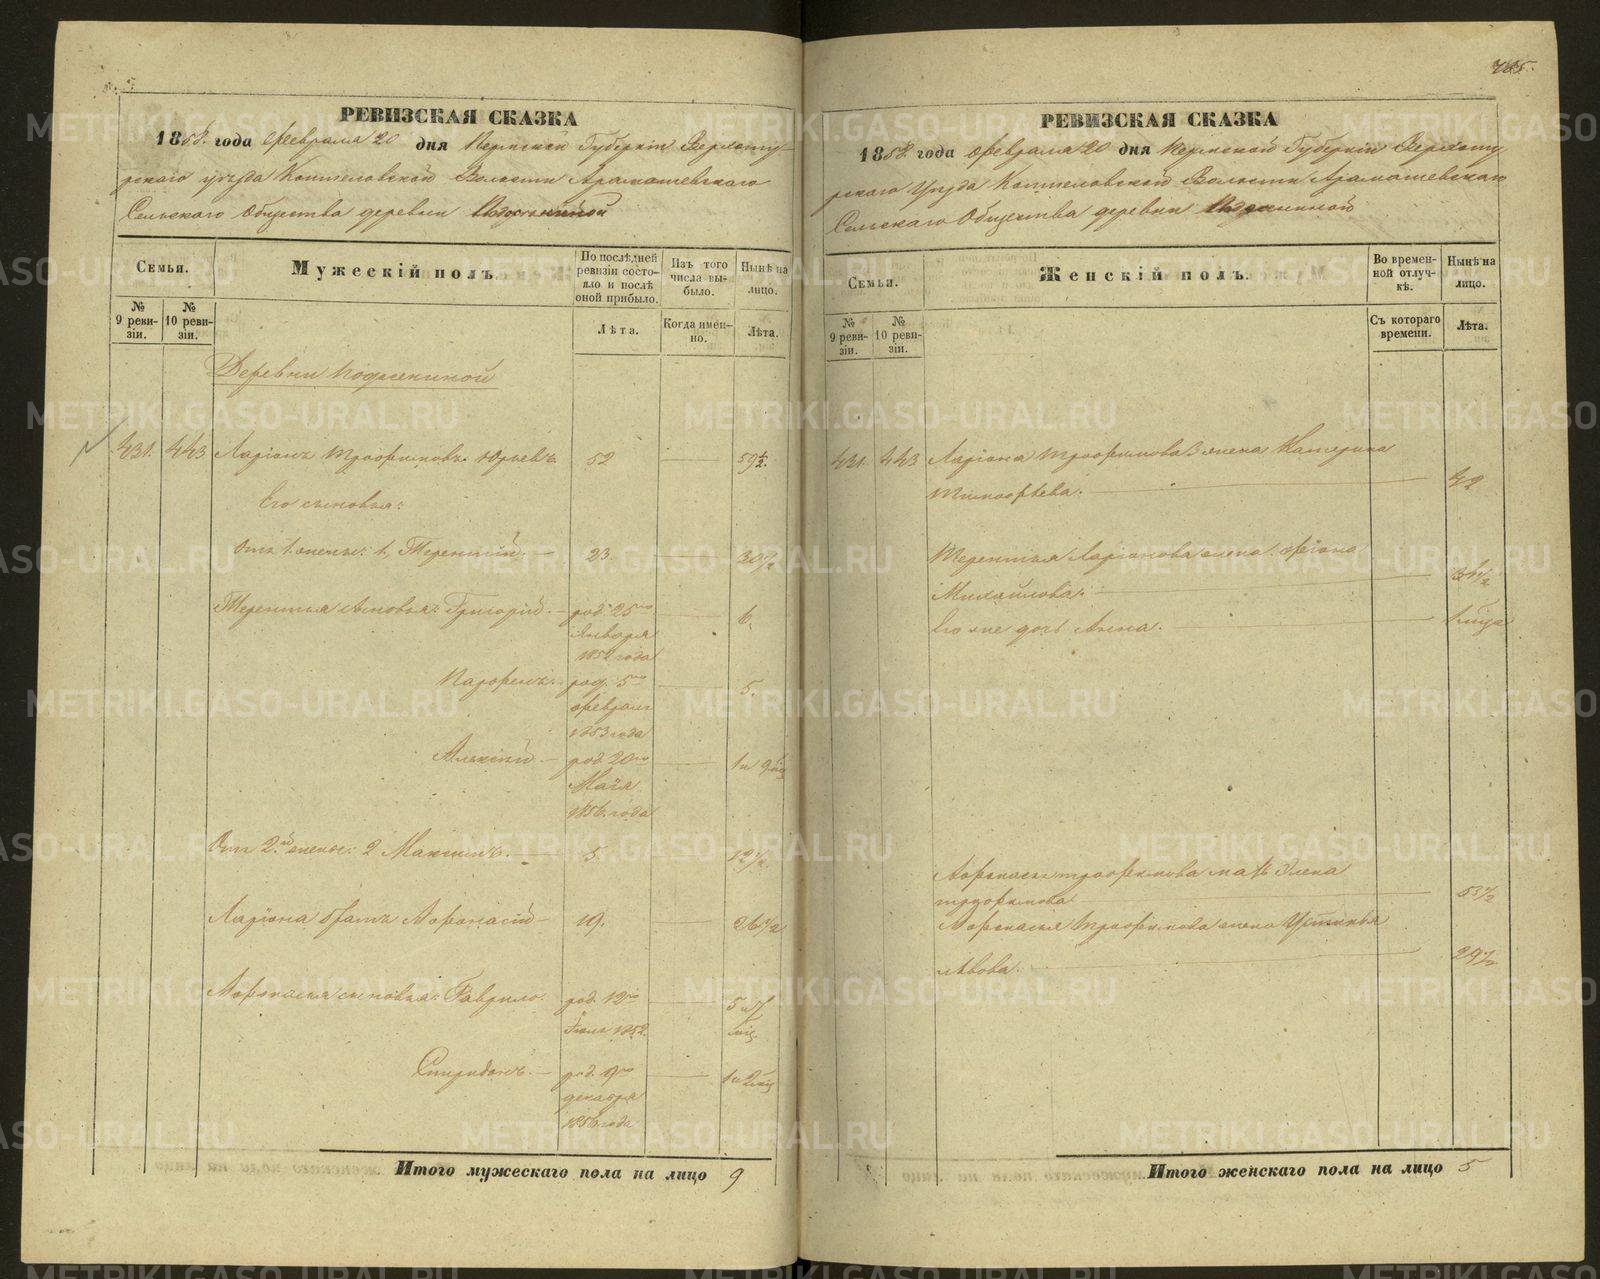 765.
РЕВИЗСКАЯ СКАЗКА
1858. года февраля 20 дня Пермской Губерніи Верхоту-
рскаго уѣзда Коптеловской Волости Арамашевскаго
Сельскаго Общества деревни
Семьи.
Мужескій полъ.
По послѣдней ревизіи состо-
яло и послѣ оной прибыло.
Изъ того числа вы-
было.
Нынѣ на лицо.
№ 9 реви-
зіи.
№ 10 реви-
зіи.
Лѣта.
Когда имен-
но.
Лѣта.
Деревни Подосениной
431. 443 Ларіонъ Трофимовъ Юрьевъ 52 59½.
Его сыновья:
Отъ 1 жены: 1, Терентій. 23. 30½
Терентья сыновья: Григорій. род. 25го 6.
Января
1852 года
Парфенъ. род. 5го 5.
февраля
1853 года
Алексѣй род. 20го 1 и 9 мѣс
Маія
1856. года
Отъ 2.й жены: 2 Максимъ. 5. 12½
Ларіона братъ Афонасій 19. 26½
Афонасья сыновья: Гаврило. род. 12го 5 и 7
Іюля 1852. мѣс
Спиридонъ. род. 9го 1 и 2 мѣс
декабря
1856 года
Итого мужескаго пола на лицо 9
РЕВИЗСКАЯ СКАЗКА
1858. года февраля 20 дня Пермской Губерніи Верхоту-
рскаго Уѣзда Коптеловской Волости Арамашевскаго
Сельскаго Общества деревни
Семьи.
Женскій полъ.
Во времен-
ной отлуч-
кѣ.
Нынѣ на лицо.
№ 9 реви-
зіи.
№ 10 реви-
зіи.
Съ котораго времени.
Лѣта.
431. 443 Ларіона Трофимова 3 жена Катерина
Тимофѣева. 42
Терентья Ларіонова жена
Михайлова.
Его же дочь Анна.
Афонасья Трофимова мать Елена
Трофимова 53½
Афонасья Трофимова жена Устинья
Львова. 29½
Итого женскаго пола на лицо 5
METRIKI.GASO-URAL.RU